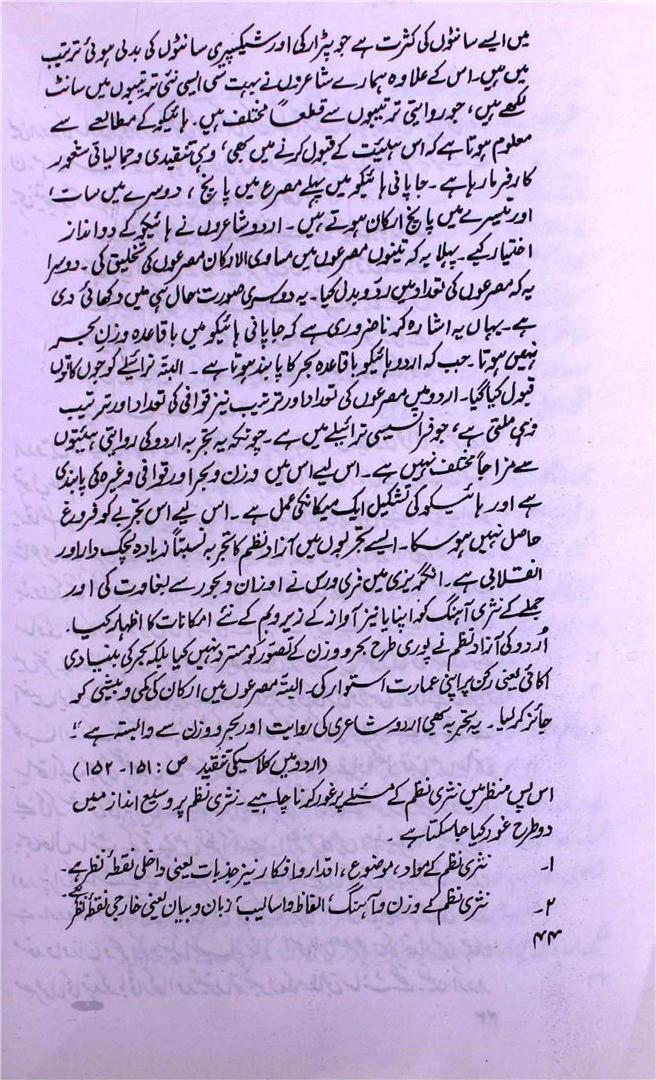 میں ایسے سانٹوں کی کثرت ہے جو پٹرارکی اور شیکسپیری سانٹوں کی بدلی ہوئی ترتیب
میں ہیں۔ اس کے علاوہ ہمارے شاعروں نے بہت سی ایسی نئی ترتیبوں میں سانٹ
لکھے ہیں، جو روایتی ترتیبوں سے قطعاً مختلف ہیں۔ ہائیکو کے مطالعے سے
معلوم ہوتا ہے کہ اس ہیئیت کے قبول کرنے میں بھی، وہی تنقیدی و جمالیاتی شعور
کارفرما رہا ہے۔ جاپانی ہائیکو میں پہلے مصرع میں پانچ، دوسرے میں سات،
اور تیسرے میں پانچ ارکان ہوتے ہیں۔ اردو شاعروں نے ہائیکو کے دو انداز
اختیار کیے۔ پہلا یہ کہ تینوں مصرعوں میں مساوی الارکان مصرعوں کی تخلیق کی۔ دوسرا
یہ کہ مصرعوں کی تعداد میں رد و بدل کیا۔ یہ دوسری صورت حال ہی میں دکھائی دی
ہے۔ یہاں یہ اشارہ کرنا ضروری ہے کہ جاپانی ہائیکو میں باقاعدہ وزن بحر
نہیں ہوتا۔ جب کہ اردو ہائیکو باقاعدہ بحر کا پابند ہوتا ہے۔ البتہ ترائیلے کو جوں کا توں
قبول کیا گیا۔ اردو میں مصرعوں کی تعداد اور ترتیب نیز قوافی کی تعداد اور ترتیب
وہی ملتی ہے، جو فرانسیسی ترائیلے میں ہے۔ چونکہ یہ تجربہ اردو کی روایتی ہیئیتوں
سے مزاجاً مختلف نہیں ہے۔ اس لیے اس میں وزن و بحر اور قوافی وغیرہ کی پابندی
ہے اور ہائیکو کی تشکیل ایک میکانکی عمل ہے۔ اس لیے اس تجربے کو فروغ
حاصل نہیں ہو سکا۔ ایسے تجربوں میں آزاد نظم کا تجربہ نسبتاً زیادہ لچک دار اور
انقلابی ہے۔ انگریزی میں فری ورس نے اوزان و بحور سے بغاوت کی اور
جملے کے نثری آہنگ کو اپنایا نیز آواز کے زیر و بم کے نئے امکانات کا اظہار کیا۔
اُردو کی آزاد نظم نے پوری طرح بحر و وزن کے تصور کو مسترد نہیں کیا بلکہ بحر کی بنیادی
اکائی یعنی رکن پر اپنی عمارت استوار کی۔ البتہ مصرعوں میں ارکان کی کمی و بیشی کو
جائز کر لیا۔ یہ تجربہ بھی اردو شاعری کی روایت اور بحر و وزن سے وابستہ ہے"۔
(اردو میں کلاسیکی تنقید ص: ۱۵۱۔۱۵۲)
اس پس منظر میں نثری نظم کے مسئلے پر غور کرنا چاہیے۔ نثری نظم پر وسیع انداز میں
دو طرح غور کیا جا سکتا ہے۔
۱۔ نثری نظم کے مواد، موضوع، اقدار و افکار نیز جذبات یعنی داخلی نقطۂ نظر سے۔
۲۔ نثری نظم کے وزن و آہنگ، الفاظ و اسالیب، زبان و بیان یعنی خارجی نقطۂ نظر سے۔
۴۴